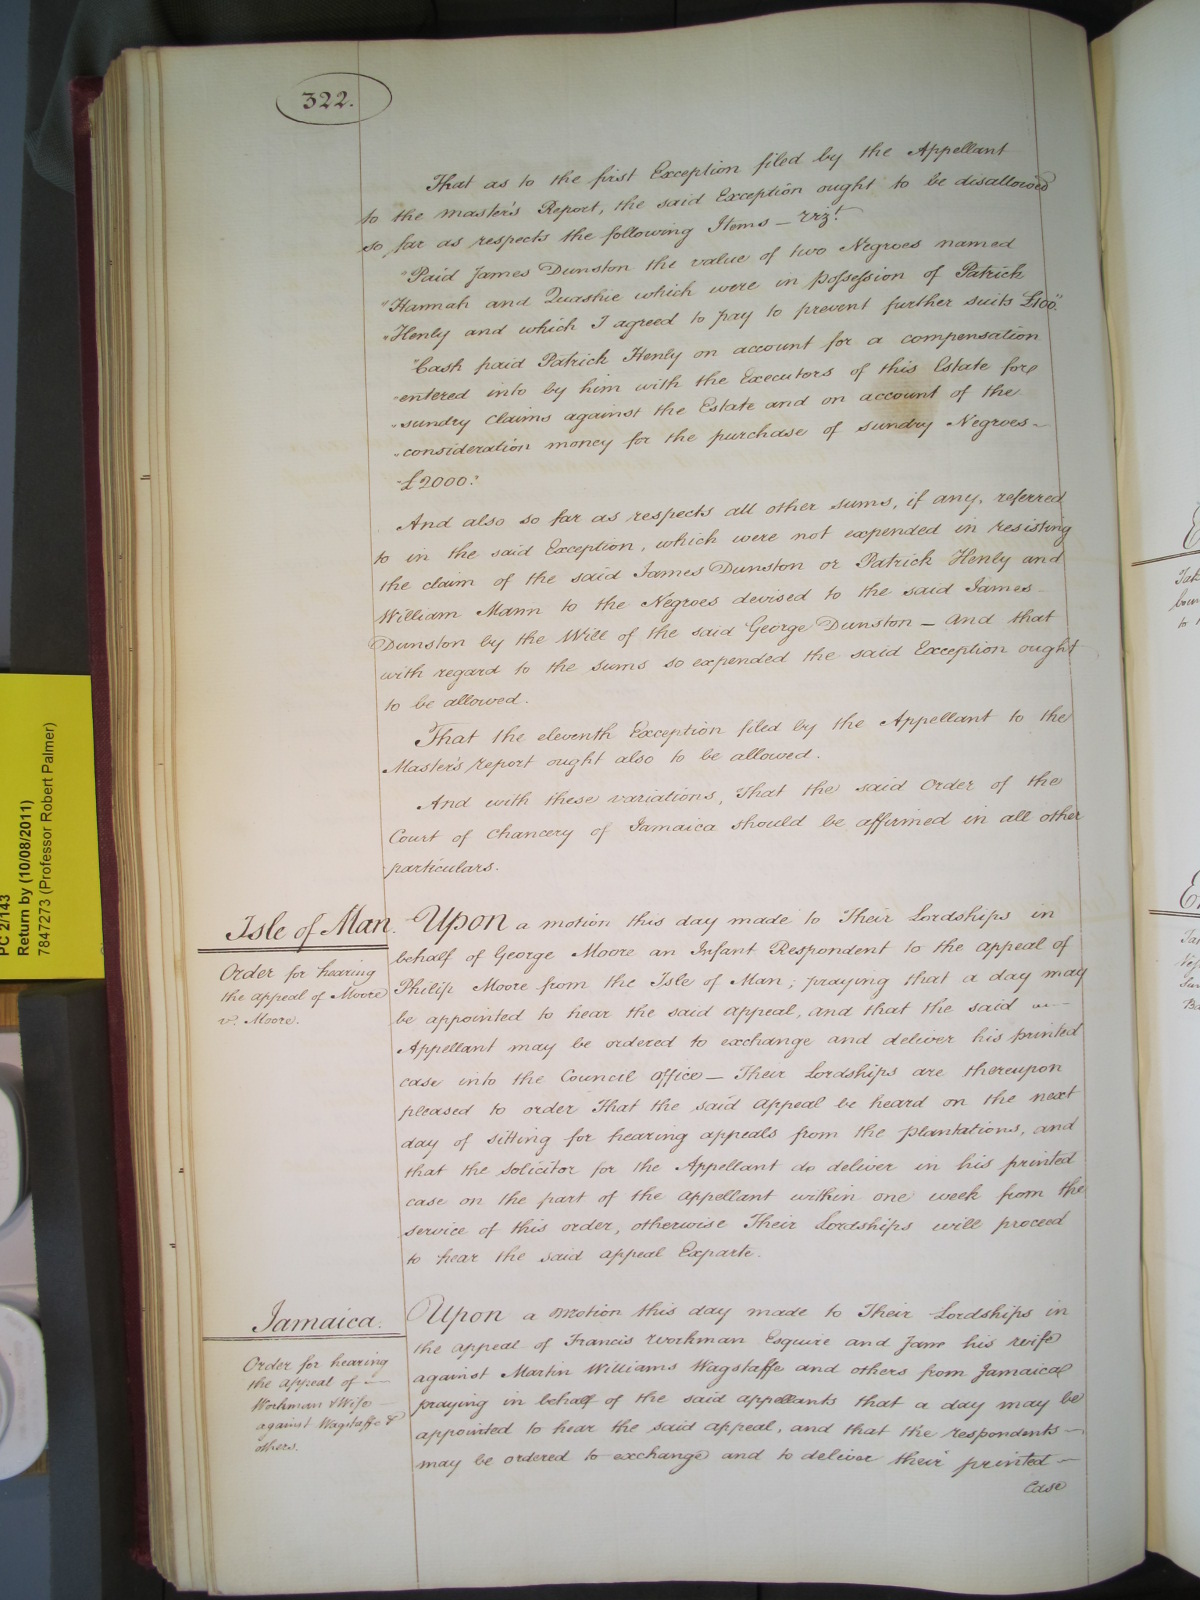 322.
That as to the first Exception filed by the Appellant
to the Master's Report, the said Exception ought to be disallowed
so far as respects the following Items — Vizt.
"Paid James Dunston the value of two Negroes named
"Hannah and Quashie which were in possession of Patrick
"Henly and which I agreed to pay to prevent further suits £100."
"Cash paid Patrick Henly on account for a compensation
"entered into by him with the Executors of this Estate for
"sundry claims against the Estate and on account of the
"consideration money for the purchase of sundry Negroes —
"£2000."
And also so far as respects all other sums, if any, referred
to in the said Exception, which were not expended in resisting
the claim of the said James Dunston or Patrick Henly and
William Mann to the Negroes devised to the said James
Dunston by the Will of the said George Dunston — And that
with regard to the sums so expended the said Exception ought
to be allowed.
That the eleventh Exception filed by the Appellant to the
Master's report ought also to be allowed.
And with these variations, That the said Order of the
Court of Chancery of Jamaica should be affirmed in all other
particulars.
Isle of Man.
Order for hearing
the appeal of Moore
v. Moore.
Upon a motion this day made to Their Lordships in
behalf of George Moore an Infant Respondent to the appeal of
Philip Moore from the Isle of Man; praying that a day may
be appointed to hear the said appeal, and that the said
Appellant may be ordered to exchange and deliver his printed
case into the Council office — Their Lordships are thereupon
pleased to order That the said appeal be heard on the next
day of sitting for hearing appeals from the plantations, and
that the solicitor for the Appellant do deliver in his printed
case on the part of the appellant within one week from the
service of this order, otherwise Their Lordships will proceed
to hear the said appeal Exparte.
Jamaica.
Order for hearing
the appeal of —
Workman & Wife —
against Wagstaffe &
others.
Upon a motion this day made to Their Lordships in
the appeal of Francis Workman Esquire and Jane his wife
against Martin Williams Wagstaffe and others from Jamaica
praying in behalf of the said appellants that a day may be
appointed to hear the said appeal, and that the respondents —
may be ordered to exchange and to deliver their printed —
Case
PC 2/143
Return by (10/08/2011)
7847273 (Professor Robert Palmer)